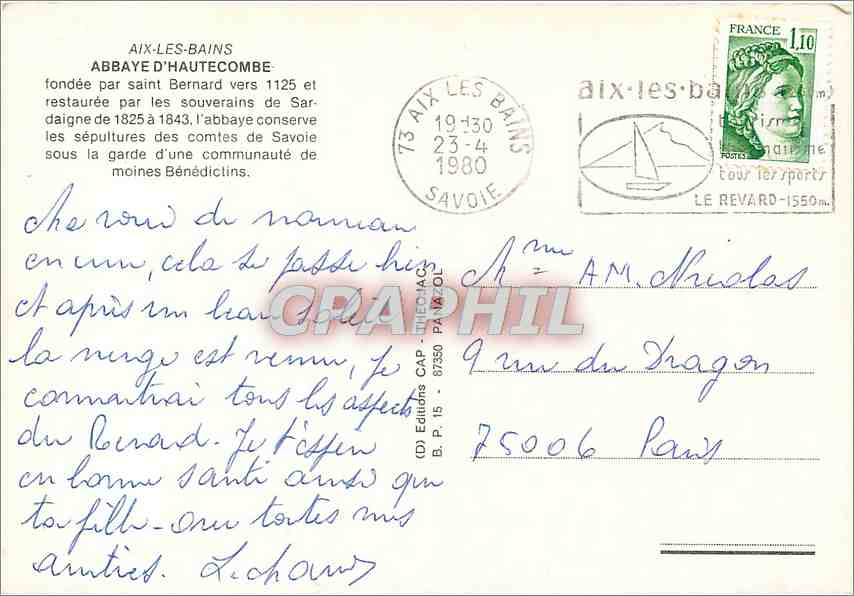 AIX-LES-BAINS
ABBAYE D'HAUTECOMBE
fondée par saint Bernard vers 1125 et
restaurée par les souverains de Sar-
daigne de 1825 à 1843, l'abbaye conserve
les sépultures des comtes de Savoie
sous la garde d'une communauté de
moines Bénédictins.
73 AIX LES BAINS
19-30
23-4
1980
SAVOIE
FRANCE 1,10
POSTES
aix-les-bains
tous les sports
LE REVARD-1550m.
Me voici de nouveau
en cure, cela se passe bien
Et après un beau soleil
la neige est venue, je
connaitrai tous les aspects
du Revard. Je t'espère
en bonne santé ainsi que
ta fille - avec toutes mes
amitiés.
Mme AM. Nicolas
9 rue du Dragon
75006 Paris
(D) Editions CAP - THEOJAC
B. P. 15 - 87350 PANAZOL
CPAPHIL